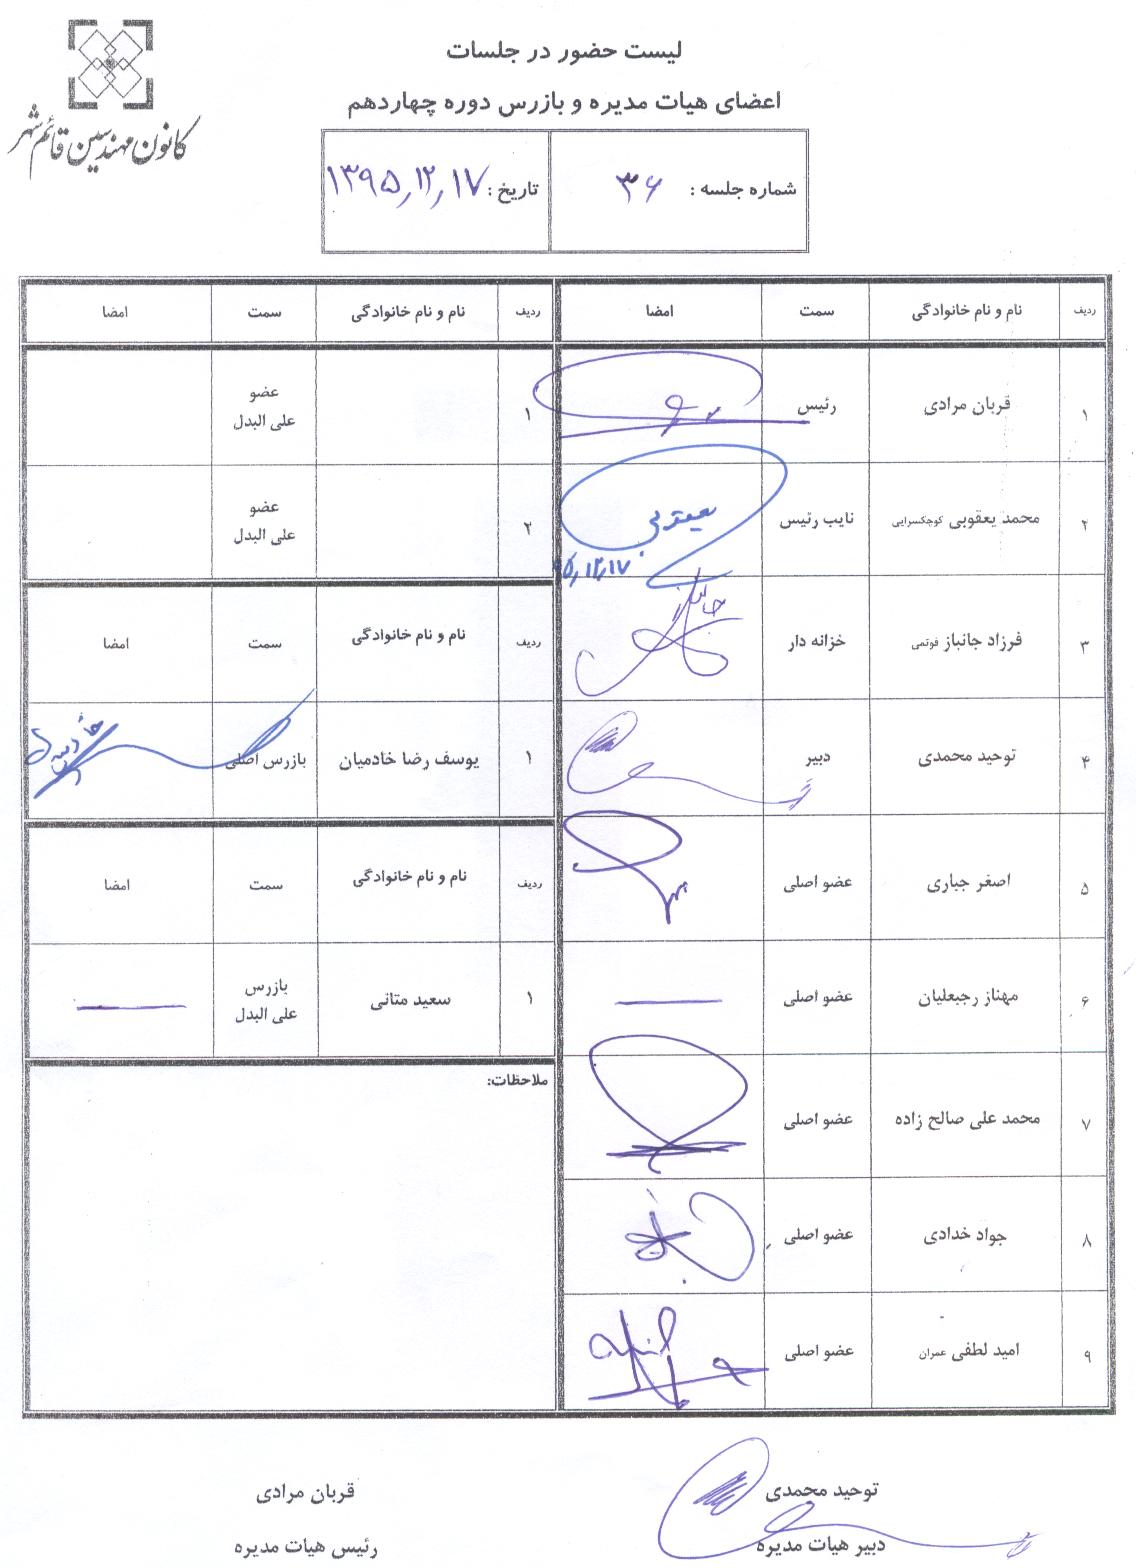 کانون مهندسین قائم شهر
لیست حضور در جلسات
اعضای هیات مدیره و بازرس دوره چهاردهم
شماره جلسه : ۳۶
تاریخ : ۱۳۹۵/۱۲/۱۷
ردیف نام و نام خانوادگی سمت امضا
۱ قربان مرادی رئیس
۲ محمد یعقوبی کوچکسرایی نایب رئیس یعقوبی
۹۵/۱۲/۱۷
۳ فرزاد جانباز فوتمی خزانه دار جانباز
۴ توحید محمدی دبیر
۵ اصغر جباری عضو اصلی
۶ مهناز رجبعلیان عضو اصلی
۷ محمد علی صالح زاده عضو اصلی
۸ جواد خدادی عضو اصلی
۹ امید لطفی عمران عضو اصلی
ردیف نام و نام خانوادگی سمت امضا
۱ عضو
علی البدل
۲ عضو
علی البدل
ردیف نام و نام خانوادگی سمت امضا
۱ یوسف رضا خادمیان بازرس اصلی
ردیف نام و نام خانوادگی سمت امضا
۱ سعید متانی بازرس
علی البدل
ملاحظات:
توحید محمدی
دبیر هیات مدیره
قربان مرادی
رئیس هیات مدیره